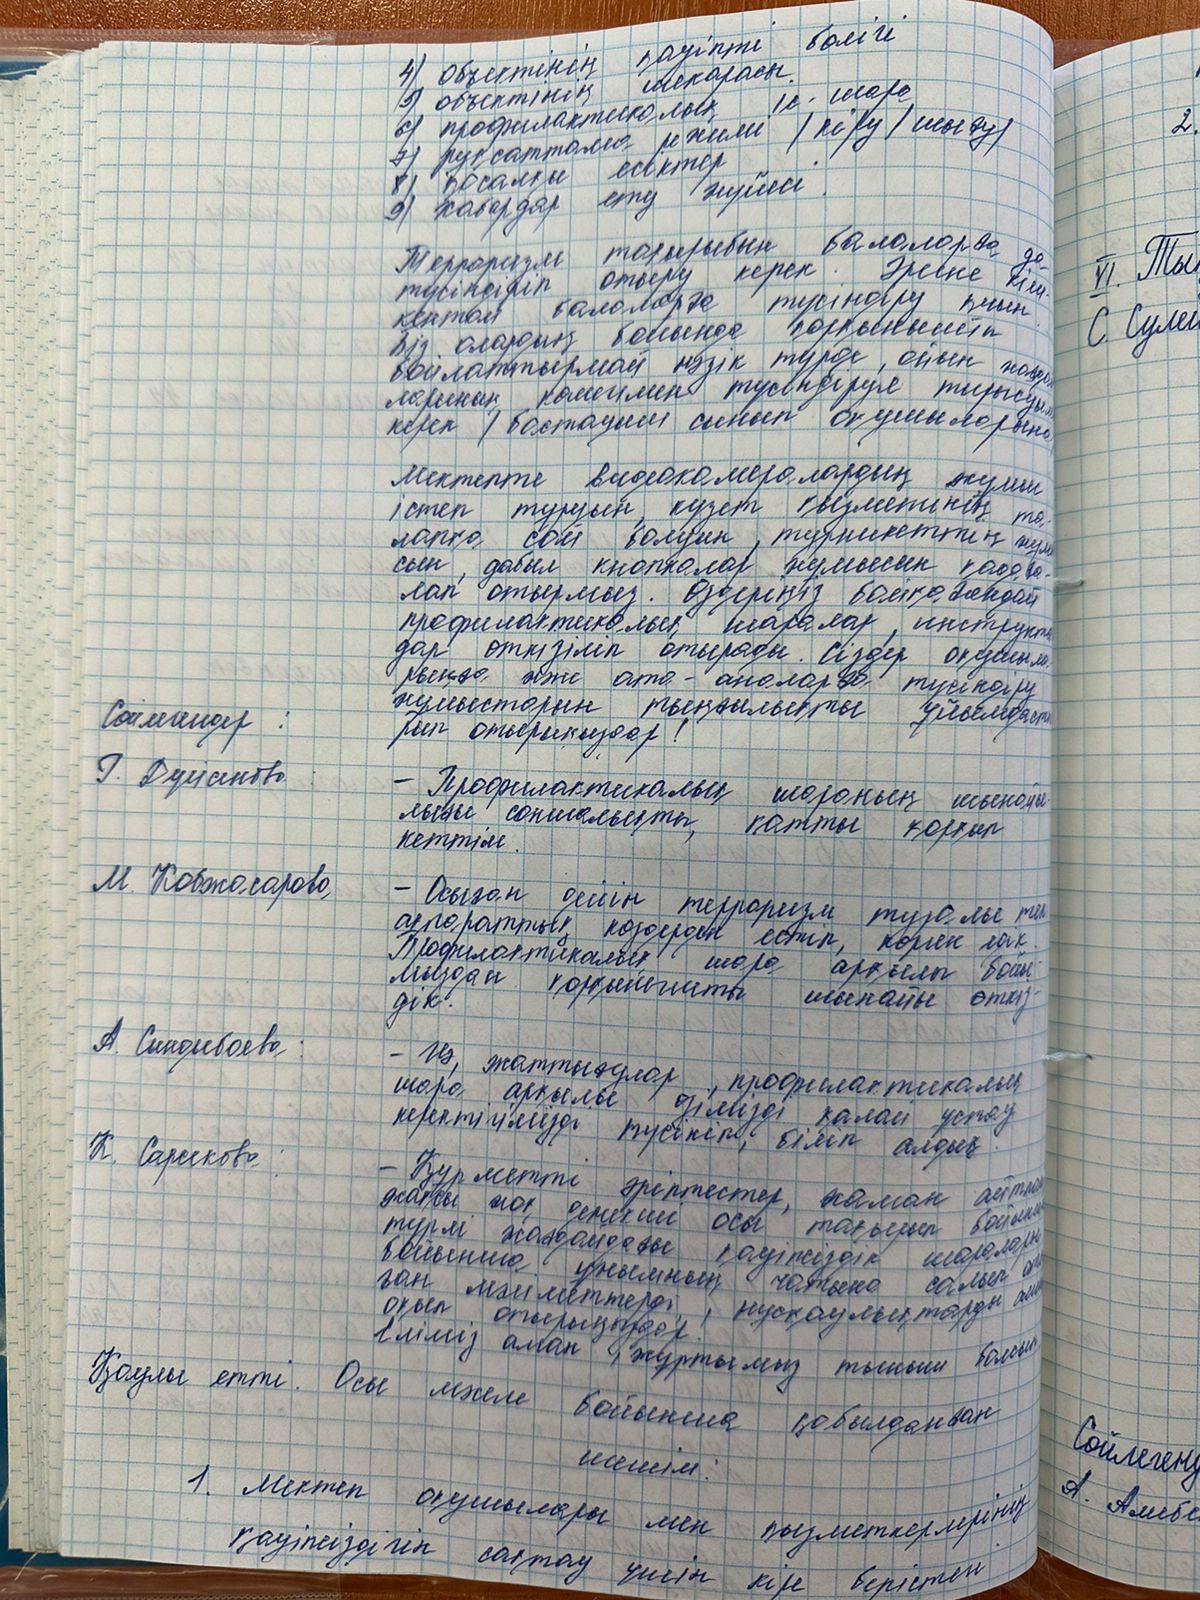 4) объектінің қауіпті бөлігі
5) объектінің шекарасы.
6) профилактикалық іс-шара
7) рұқсаттама режимі /кіру/шығу/
8) қосалқы есіктер
9) хабардар ету жүйесі.
Терроризм тақырыбын балаларға да
түсіндіріп отыру керек. Әрине кіш-
кентай балаларға түсіндіру қиын.
Біз олардың бойында қорқынышты
байлаттырмай нәзік түрде, ойын
ларының көмегімен түсіндіруге тырысуымыз
керек /бастауыш сынып оқушыларына
Мектепте видеокамералардың жұмыс
істеп тұруын, күзет қызметінің та-
лапқа сай болуын, турникеттің жұмы
сын, дабыл кнопкалар жұмысын қадаға-
лап отырмыз. Өздеріңіз байқағандай
профилактикалық шаралар, инструктаж
дар өткізіліп отырады. Сіздер оқушыла
рыңызға және ата-аналарға түсіндіру
жұмыстарын тыңғылықты ұйымдасты
рып отырыңыздар!
Сөйлегендер:
Г. Дүйсенова: – Профилактикалық шараның шынайы
лығы соншалықты, қатты қорқып
кеттім.
М. Қожахарова – Осыған дейін терроризм туралы тек
ақпараттық көздерден естіп, көрген едік.
Профилактикалық шара арқылы бойы-
мыздан қорқынышты шынайы өткіз-
дік.
А. Сындыбаева: – Иә, жаттығулар, профилактикалық
шара арқылы өзімізді қалай ұстау
керектігімізді түсініп, біліп алдық.
К. Сарикова: – Құрметті әріптестер, жаман айтпай
жақсы жоқ дегендей осы тақырып бойынша
түрлі жағдайдағы қауіпсіздік шаралары
бойынша ұжымның чатына салып отыр
ған мәліметтерді, нұсқаулықтарды
оқып отырыңыздар!
Еліміз аман, жұртымыз тыныш болсын
Қаулы етті. Осы мәселе бойынша қабылданған
шешім:
1. Мектеп оқушылары мен қызметкерлерінің
қауіпсіздігін сақтау үшін кіре берістен
2.
VI. Ты
С. Сулей
Сөйлегенд
А. Алибе